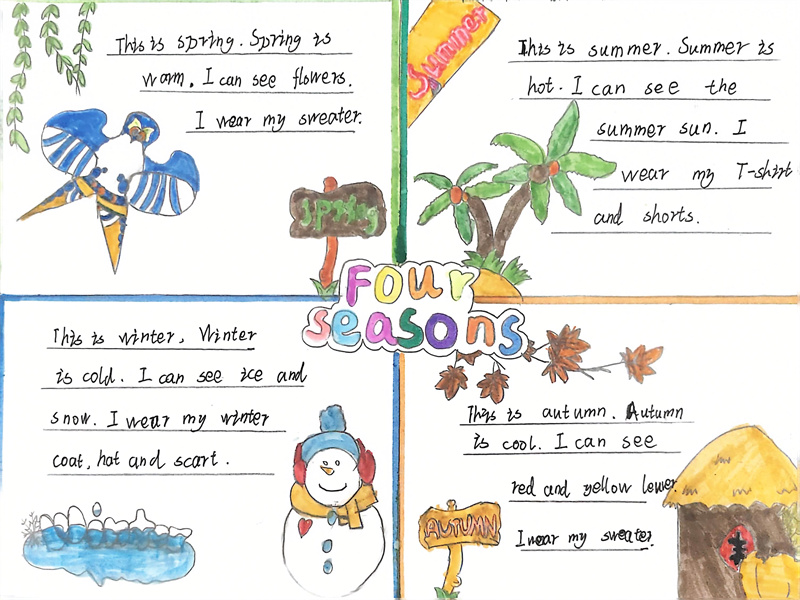 This is spring. Spring is
warm. I can see flowers.
I wear my sweater.
spring
Summer
This is summer. Summer is
hot. I can see the
summer sun. I
wear my T-shirt
and shorts.
Four
seasons
This is winter, Winter
is cold. I can see ice and
snow. I wear my winter
coat, hat and scart.
This is autumn. Autumn
is cool. I can see
red and yellow
I wear my sweater.
AUTUMN